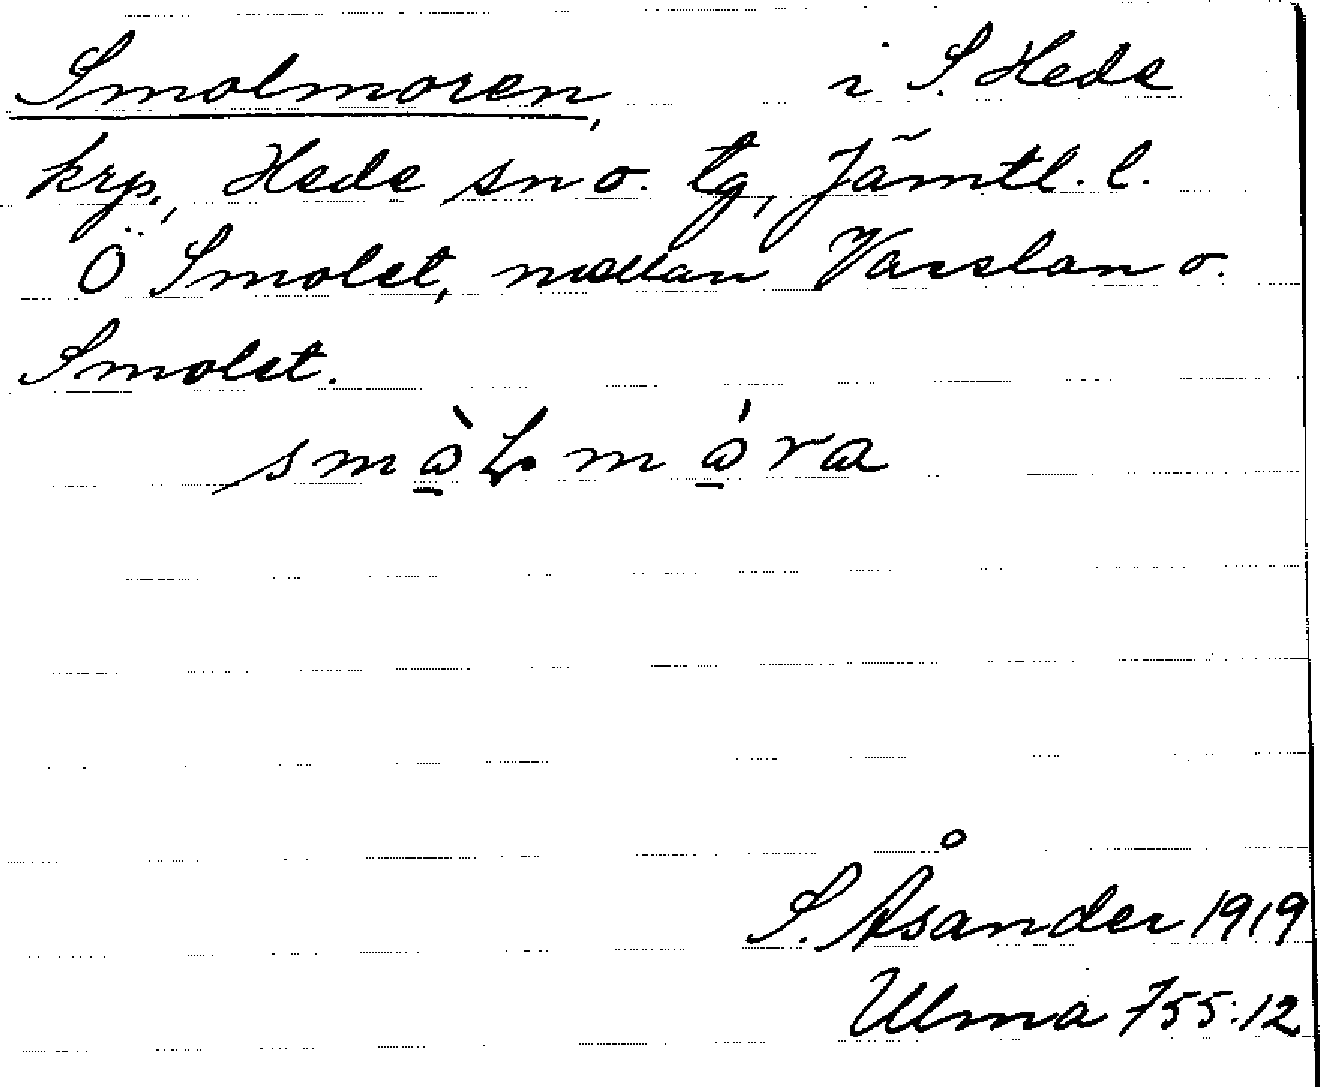 Smolmoren, i S. Hede
krp., Hede sn o. tg, Jämtl. l.
Ö Smolet, mellan Vasslan o.
Smolet.
smò̱Lmó̱ra
S. Åsander 1919
Ulma 755:12